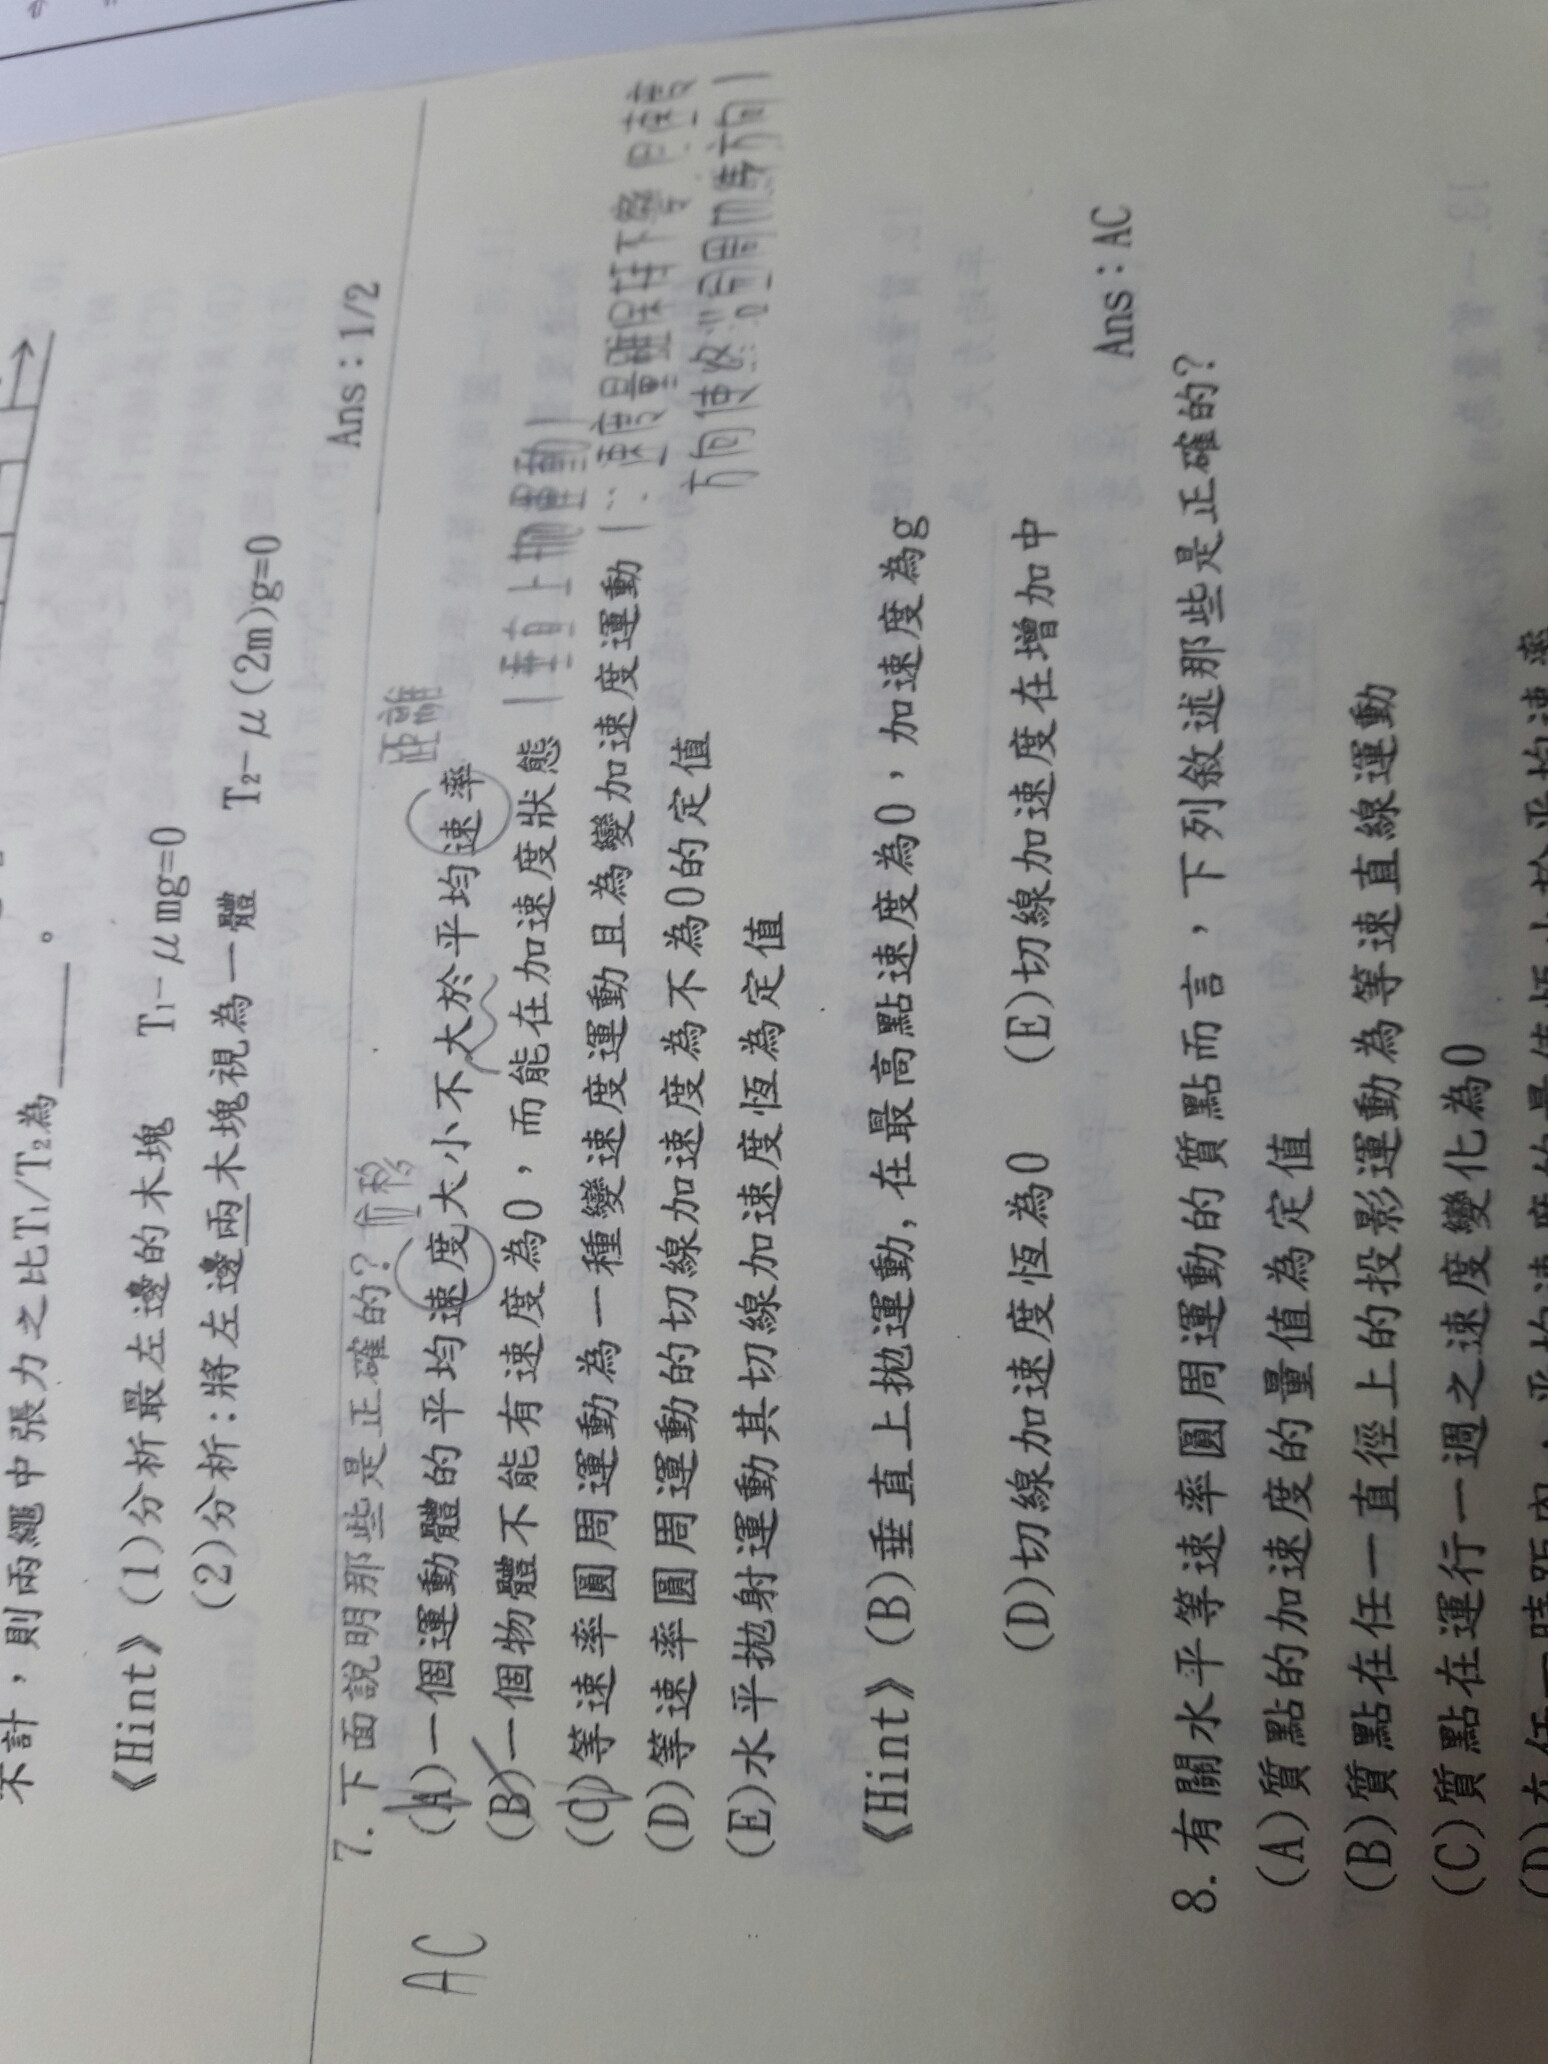 不計，則兩繩中張力之比T₁/T₂為＿＿＿。
《Hint》(1)分析最左邊的木塊 T₁-μmg=0
(2)分析:將左邊兩木塊視為一體 T₂-μ(2m)g=0
Ans：1/2
7.下面說明那些是正確的？
位移 距離
(A)一個運動體的平均速度大小不大於平均速率
(B)一個物體不能有速度為0，而能在加速度狀態 (垂直上拋運動)
(C)等速率圓周運動為一種變速度運動且為變加速度運動 (∵速度量雖保持不變，但速度
方向使終沿圓周切線方向)
(D)等速率圓周運動的切線加速度為不為0的定值
(E)水平拋射運動其切線加速度恆為定值
AC
《Hint》(B)垂直上拋運動,在最高點速度為0，加速度為g
(D)切線加速度恆為0 (E)切線加速度在增加中
Ans：AC
8.有關水平等速率圓周運動的質點而言，下列敘述那些是正確的?
(A)質點的加速度的量值為定值
(B)質點在任一直徑上的投影運動為等速直線運動
(C)質點在運行一週之速度變化為0